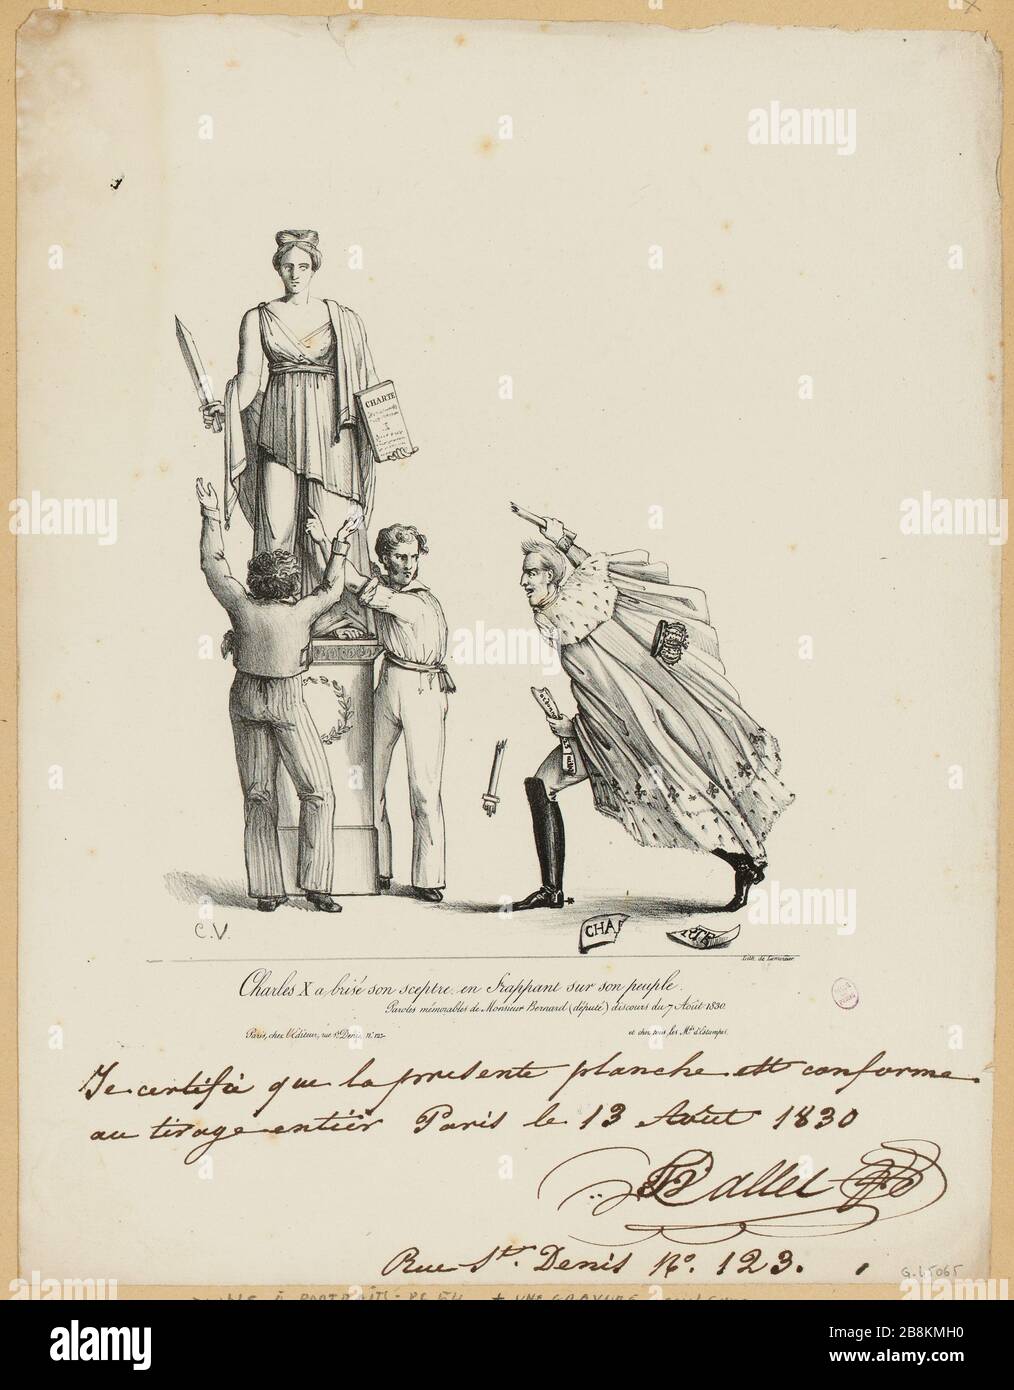 CHARTE
ordon
CHAR
RTE
C.V.
Lith. de Lemercier
Charles X a brisé son sceptre en frappant sur son peuple.
Paroles mémorables de Monsieur Bernard (député) discours du 7 Août 1830.
Paris, chez l'Editeur, rue St. Denis, No. 123.
et chez tous les Mds. d'Estampes.
Je certifie que la présente planche est conforme
au tirage entier Paris le 13 Août 1830
Ballet
Rue St. Denis No. 123.
G.15065
alamy
alamy
Image ID: 2B8KMH0
www.alamy.com